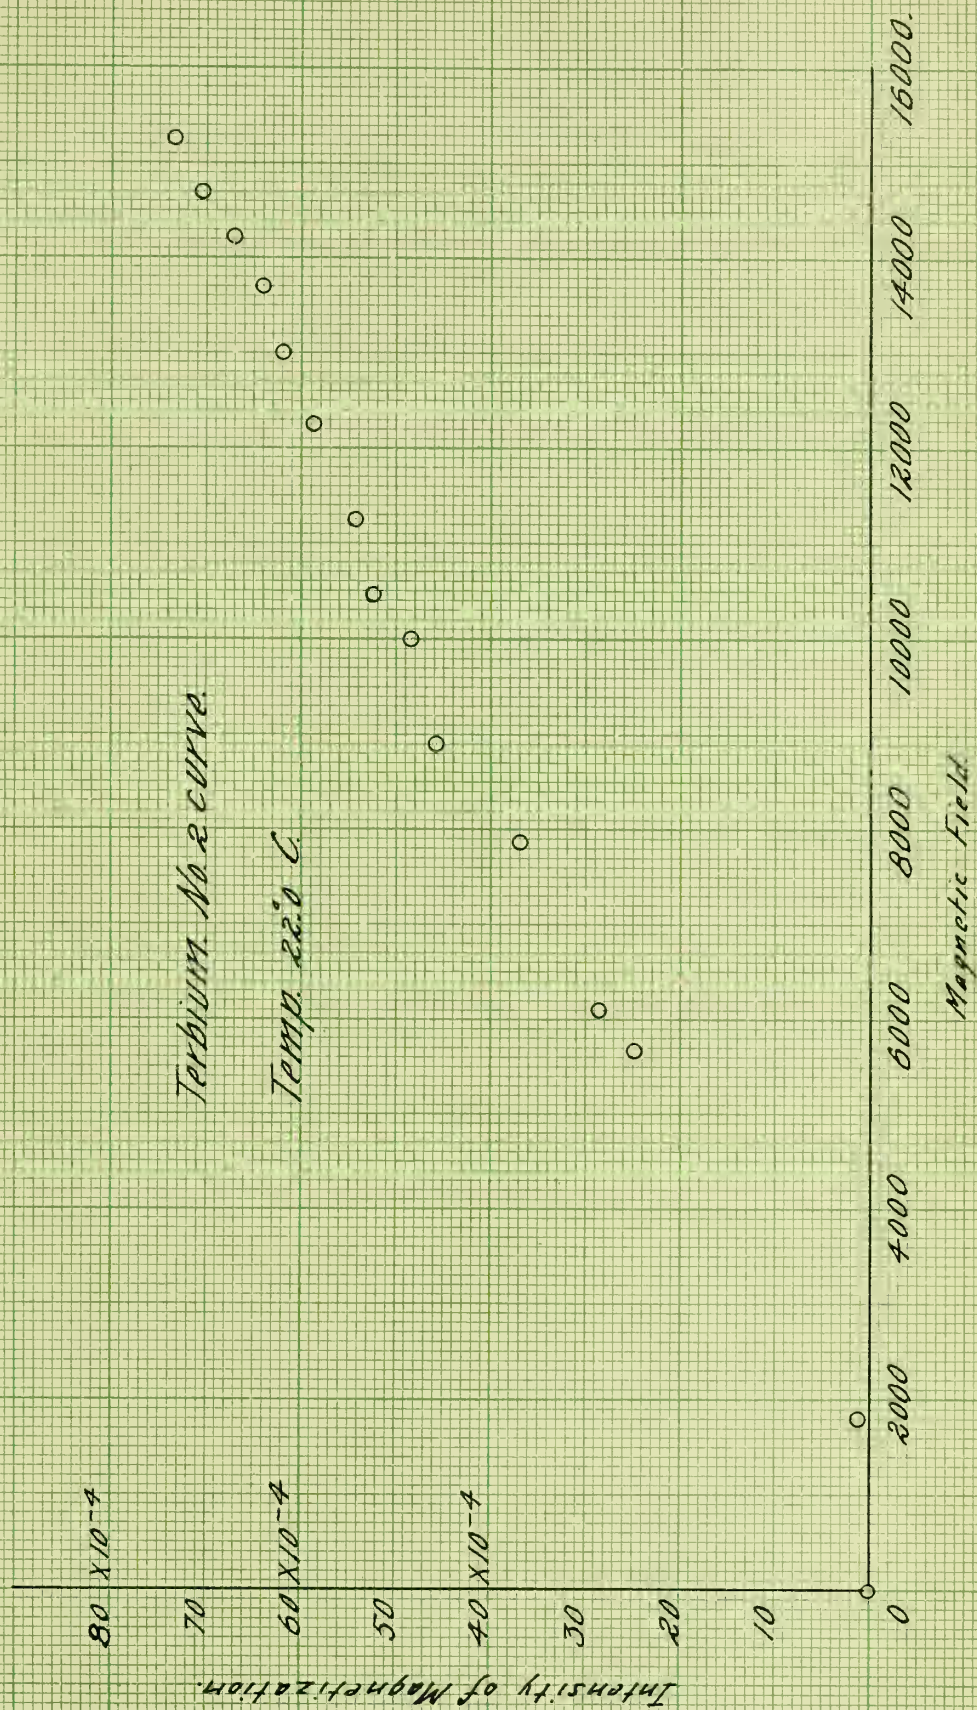 Terbium. No. 2 curve.
Temp. 22.°0 C.
Intensity of Magnetization.
80 X10-4
70
60 X10-4
50
40 X10-4
30
20
10
0
2000
4000
6000
8000
10000
12000
14000
16000.
Magnetic Field.